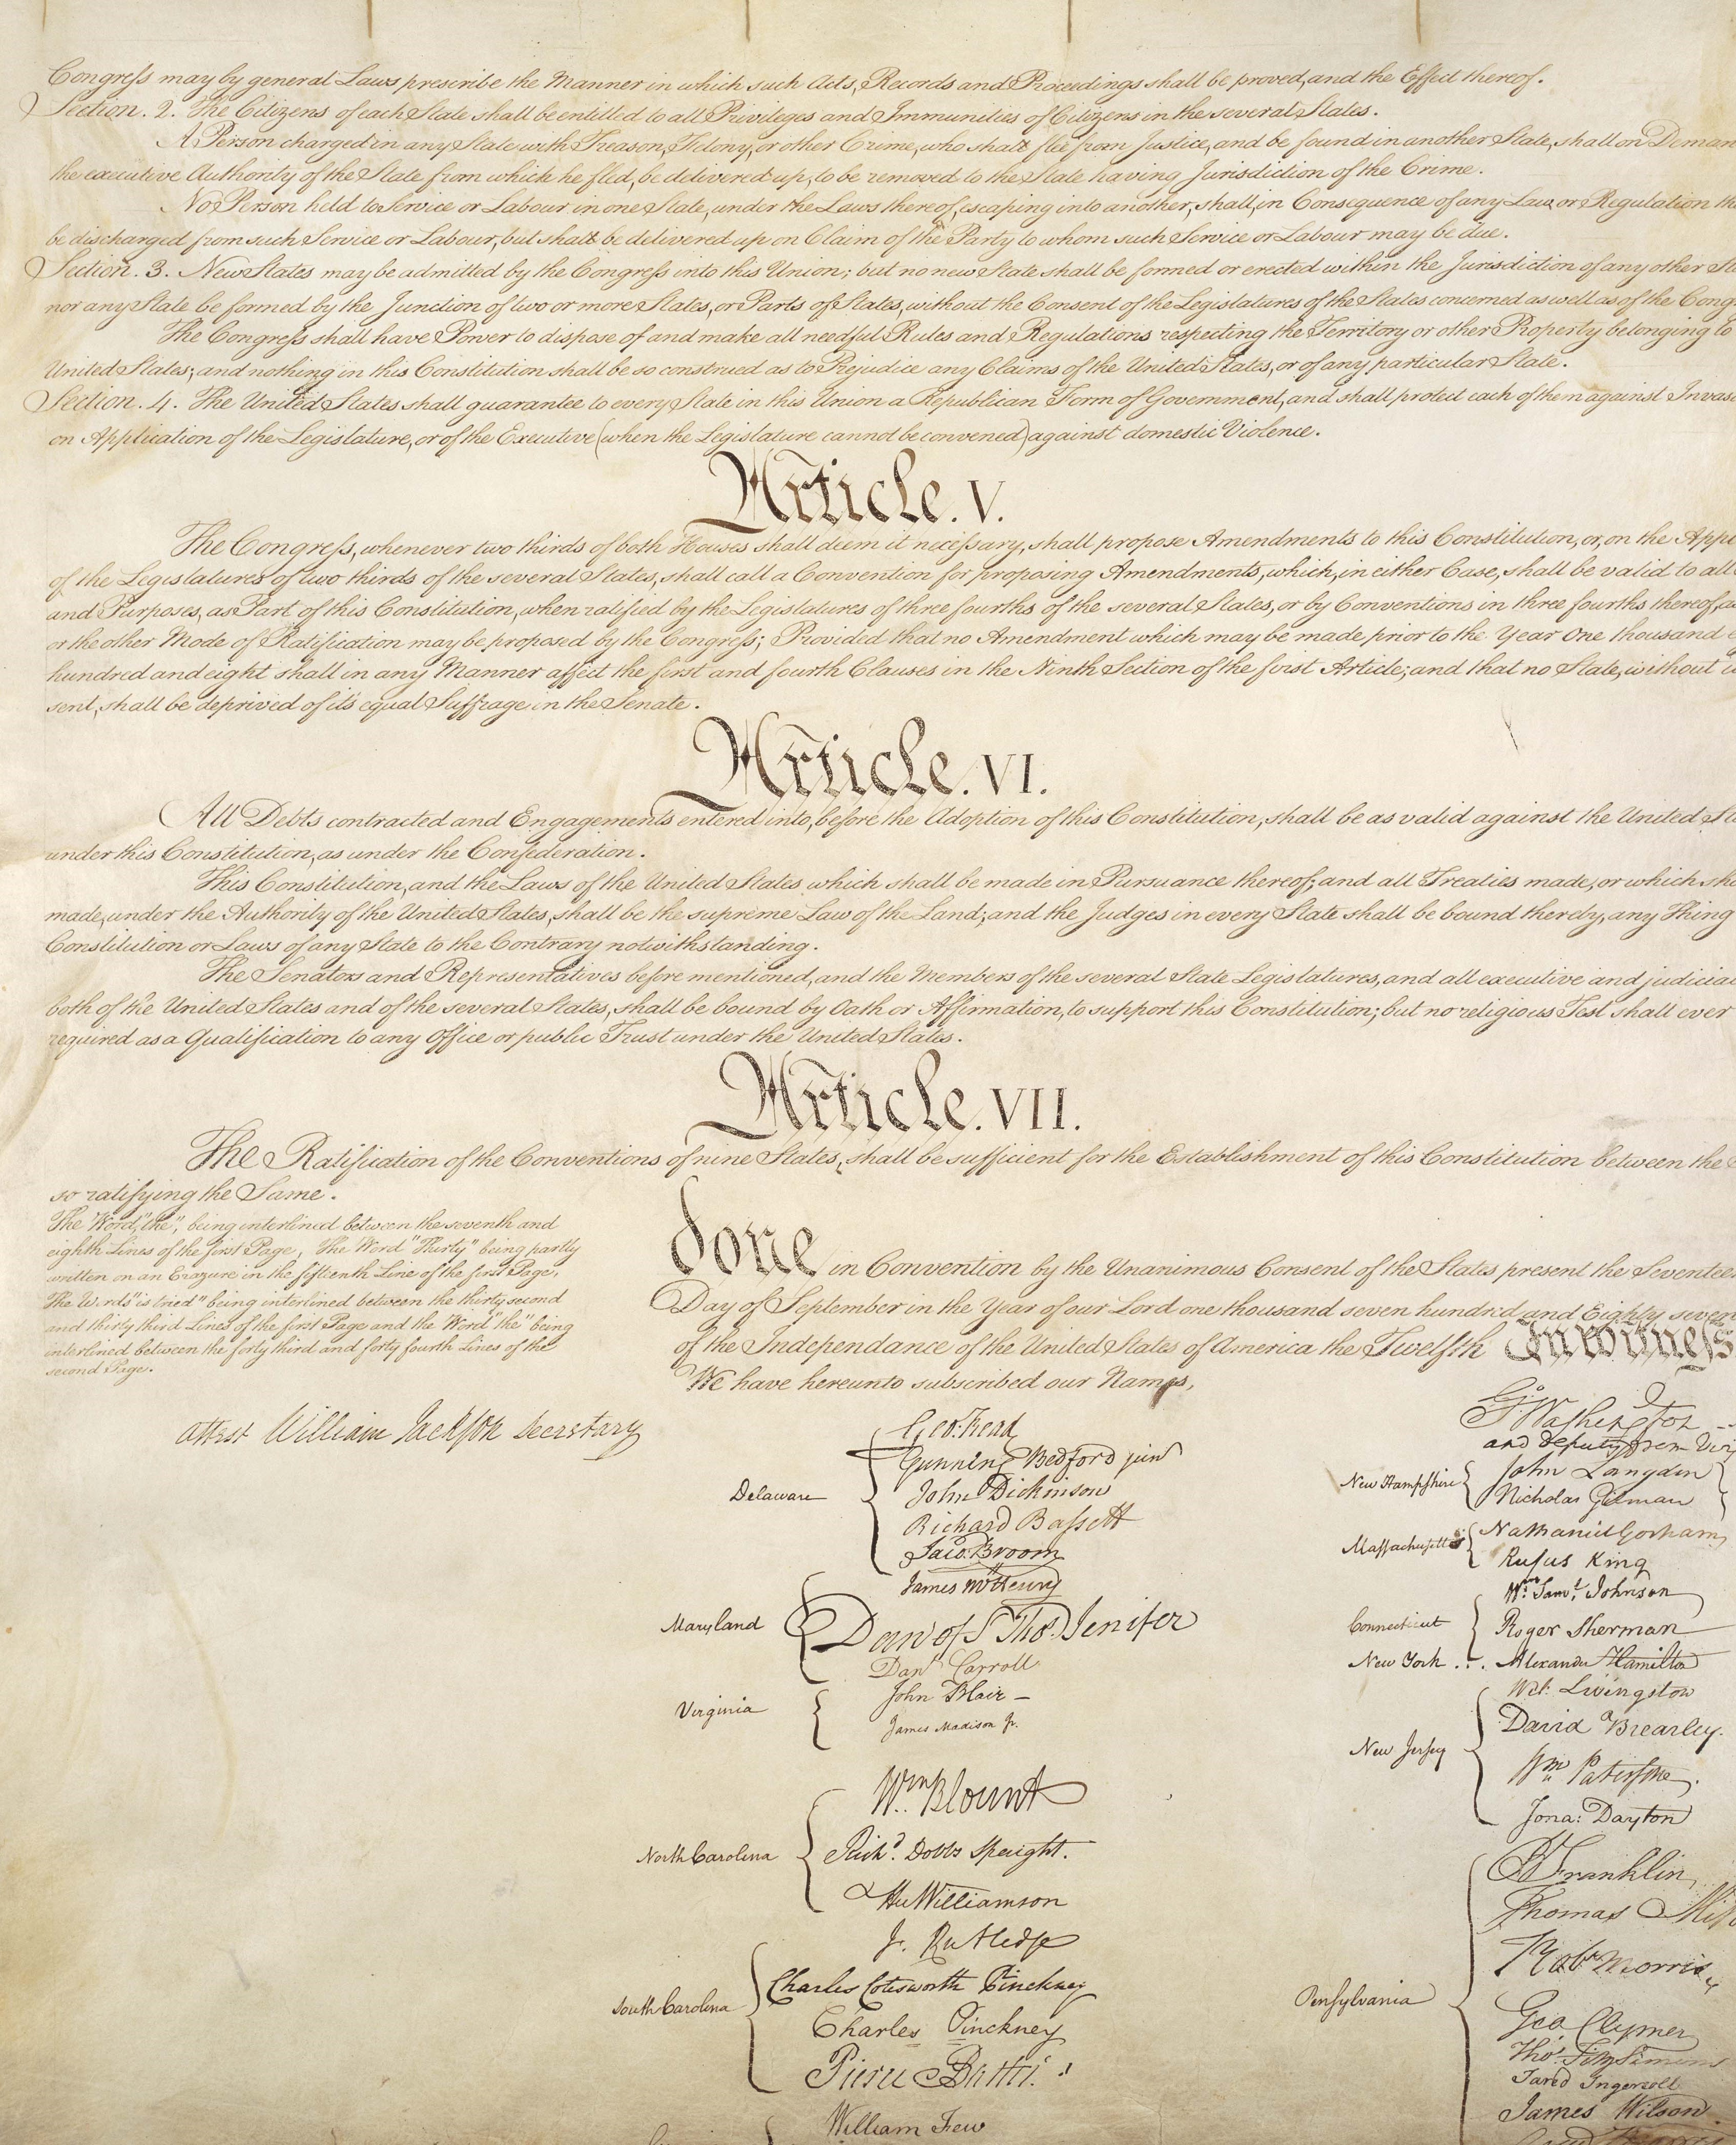 Congreſs may by general Laws prescribe the Manner in which such Acts, Records and Proceedings shall be proved, and the Effect thereof.
Section. 2. The Citizens of each State shall be entitled to all Privileges and Immunities of Citizens in the several States.
A Person charged in any State with Treason, Felony, or other Crime, who shall flee from Justice, and be found in another State, shall on Deman
the executive Authority of the State from which he fled, be delivered up, to be removed to the State having Jurisdiction of the Crime.
No Person held to Service or Labour in one State, under the Laws thereof, escaping into another, shall, in Consequence of any Law or Regulation the
be discharged from such Service or Labour, but shall be delivered up on Claim of the Party to whom such Service or Labour may be due.
Section. 3. New States may be admitted by the Congreſs into this Union; but no new State shall be formed or erected within the Jurisdiction of any other St
nor any State be formed by the Junction of two or more States, or Parts of States, without the Consent of the Legislatures of the States concerned as well as of the Cong
The Congreſs shall have Power to dispose of and make all needful Rules and Regulations respecting the Territory or other Property belonging to
United States; and nothing in this Constitution shall be so construed as to Prejudice any Claims of the United States, or of any particular State.
Section. 4. The United States shall guarantee to every State in this Union a Republican Form of Government, and shall protect each of them against Invas
on Application of the Legislature, or of the Executive (when the Legislature cannot be convened) against domestic Violence.
Article. V.
The Congreſs, whenever two thirds of both Houses shall deem it neceſsary, shall propose Amendments to this Constitution, or, on the Appl
of the Legislatures of two thirds of the several States, shall call a Convention for proposing Amendments, which, in either Case, shall be valid to all
and Purposes, as Part of this Constitution, when ratified by the Legislatures of three fourths of the several States, or by Conventions in three fourths thereof, a
or the other Mode of Ratification may be proposed by the Congreſs; Provided that no Amendment which may be made prior to the Year One thousand e
hundred and eight shall in any Manner affect the first and fourth Clauses in the Ninth Section of the first Article; and that no State, without
sent, shall be deprived of it's equal Suffrage in the Senate.
Article. VI.
All Debts contracted and Engagements entered into, before the Adoption of this Constitution, shall be as valid against the United Sta
under this Constitution, as under the Confederation.
This Constitution, and the Laws of the United States which shall be made in Pursuance thereof; and all Treaties made, or which sha
made, under the Authority of the United States, shall be the supreme Law of the Land; and the Judges in every State shall be bound thereby, any Thing
Constitution or Laws of any State to the Contrary notwithstanding.
The Senators and Representatives before mentioned, and the Members of the several State Legislatures, and all executive and judicial
both of the United States and of the several States, shall be bound by Oath or Affirmation, to support this Constitution; but no religious Test shall ever
required as a Qualification to any Office or public Trust under the United States.
Article. VII.
The Ratification of the Conventions of nine States, shall be sufficient for the Establishment of this Constitution between the
so ratifying the Same.
The Word, "the", being interlined between the seventh and
eighth Lines of the first Page, The Word "Thirty" being partly
written on an Erazure in the fifteenth Line of the first Page,
The Words "is tried" being interlined between the thirty second
and thirty third Lines of the first Page and the Word "the" being
interlined between the forty third and forty fourth Lines of the
second Page.
attest William Jackson Secretary
done in Convention by the Unanimous Consent of the States present the Seventee
Day of September in the Year of our Lord one thousand seven hundred and Eighty seven
of the Independance of the United States of America the Twelfth In witneſs
We have hereunto subscribed our Names,
Delaware
Geo: Read
Gunning Bedford jun
John Dickinson
Richard Baſsett
Jaco: Broom
Maryland
James McHenry
Dan of St Thos. Jenifer
Danl Carroll
Virginia
John Blair –
James Madison Jr.
North Carolina
Wm. Blount
Richd. Dobbs Spaight.
Hu Williamson
South Carolina
J. Rutledge
Charles Cotesworth Pinckney
Charles Pinckney
Pierce Butler.
William Few
Go. Washington
and deputy from Vir
New Hampſhire
John Langdon
Nicholas Gilman
Maſsachusetts
Nathaniel Gorham
Rufus King
Connecticut
Wm. Saml. Johnson
Roger Sherman
New York . . . Alexander Hamilton
New Jerſey
Wil: Livingston
David Brearley.
Wm Paterson.
Jona: Dayton
Penſylvania
B Franklin
Thomas Miff
Robt Morris
Geo Clymer
Thos. FitzSimons
Jared Ingersoll
James Wilson.